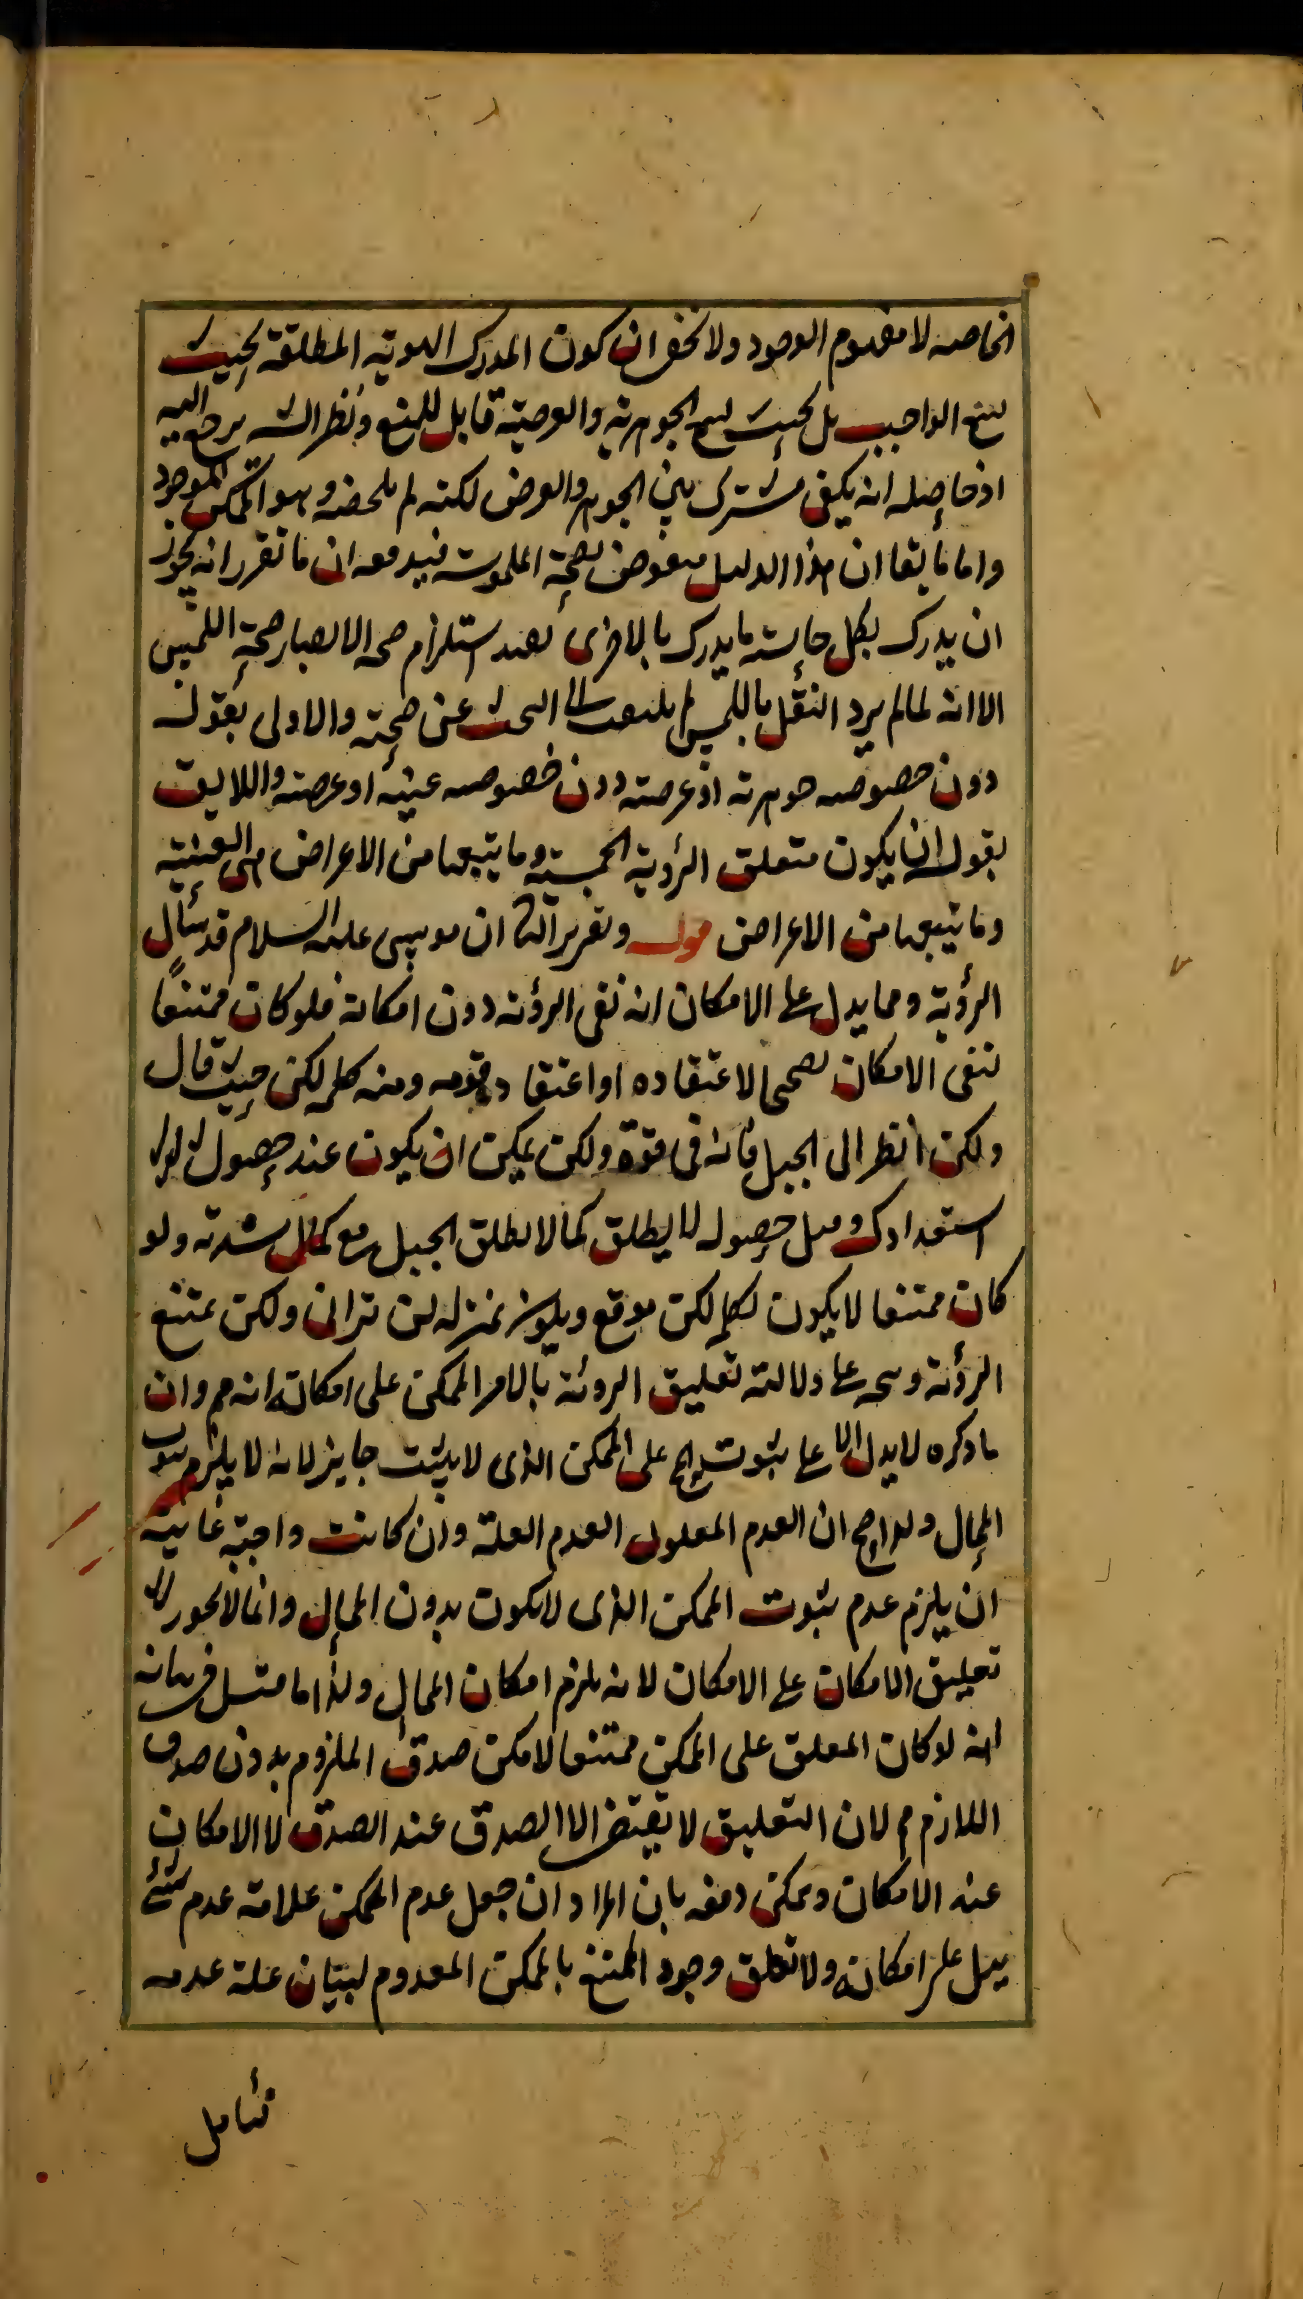 الخاصه لا مفهوم الوجود ولا يخفى ان كون المدرك الهويه المطلقة بحيث
يسع الواجب بل بحيث يسع الجوهريه والعرضية قابل للمنع ونظر الش يرجع اليه
اذ حاصله انه يكفى مشترك بين الجوهر والعرض لكنه لم يلخصه وهو الممكن الموجود
واما ما يقا ان هذا الدليل منقوض بصحة الملموسية فيدفعه ان ما تقرر انه يجوز
ان يدرك بكل حاسة ما يدرك بالاخرى يفيد استلزام صحه الابصار صحة اللمس
الا انه لما لم يرد النقل باللمس لم يلتفت الى البحث عن صحته والاولى بقوله
دون خصوصه جوهرية او عرضية دون خصوصه عينية او عرضية واللايق
بقوله ان يكون متعلق الرؤية الجسمية وما يتبعها من الاعراض هى العينية
وما يتبعها من الاعراض قوله وتقرير الثا ان موسى عليه السلام قد سأل
الرؤية ومما يدل على الامكان انه نفى الرؤية دون امكانه فلو كان ممتنعا
لنفى الامكان تصحيحا لاعتقاده او اعتقاد قومه ومنه كلمه لكن حيث قال
ولكن انظر الى الجبل فانه فى قوة ولكن يمكن ان يكون عند حصول
استعدادك وقبل حصوله لا يطلق كما لا يطلق الجبل مع كمال شدته ولو
كان ممتنعا لا يكون لكلمه لكن موقع ويكون بمنزله لن ترانى ولكن يمتنع
الرؤية ويتجه على دلالته تعليق الروية بالامر الممكن على امكانه انه مم وان
ما ذكره لا يدل الا على ثبوت المح على الممكن الذى لا يثبت جايز لانه لا يلزم ثبوت
المحال ولو اصح ان العدم المعلول العدم العلة وان كانت واجبة غايته
ان يلزم عدم ثبوت الممكن الذى لا يكون بدون المحال وانما لا يجوز
تعليق الامكان على الامكان لانه يلزم امكان المحال ولذا ما قيل فى بيانه
انه لو كان المعلق على الممكن ممتنعا لامكن صدق الملزوم بدون صدق
اللازم مم لان التعليق لا يقتضى الا الصدق عند الصدق لا الامكان
عند الامكان ويمكن دفعه بان المراد ان جعل عدم الممكن علامة عدم شئ
يدل على امكانه ولا تعلق وجود الممتنع بالممكن المعدوم لبيان علة عدمه
تأمل